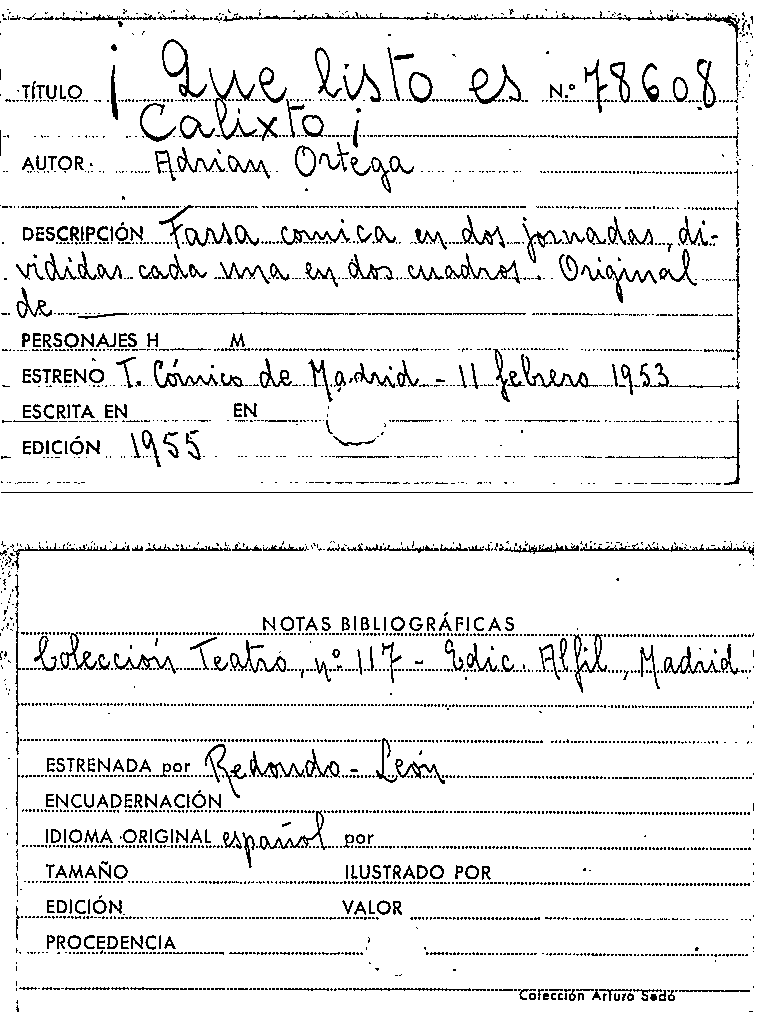 TÍTULO ¡ Que listo es N.º 78608
Calixto ¡
AUTOR Adrian Ortega
DESCRIPCIÓN Farsa comica en dos jornadas, di-
vididas cada una en dos cuadros. Original
de ___
PERSONAJES H M
ESTRENO T. Cómico de Madrid - 11 febrero 1953
ESCRITA EN EN
EDICIÓN 1955
NOTAS BIBLIOGRÁFICAS
Colección Teatro, nº 117 - Edic. Alfil, Madrid
ESTRENADA por Redondo - León
ENCUADERNACIÓN
IDIOMA ORIGINAL español por
TAMAÑO ILUSTRADO POR
EDICIÓN VALOR
PROCEDENCIA
Colección Arturo Sedó